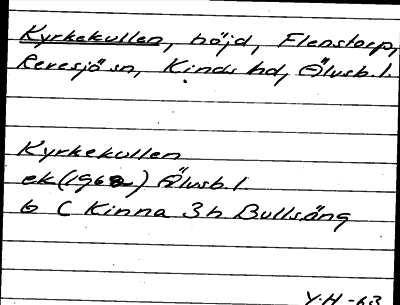 Kyrkekullen, höjd, Flenstorp,
Revesjö sn, Kinds hd, Älvsb. l.
Kyrkekullen
ek (1962) Älvsb. l
6 C Kinna 3 h Bullsäng
Y.H -63